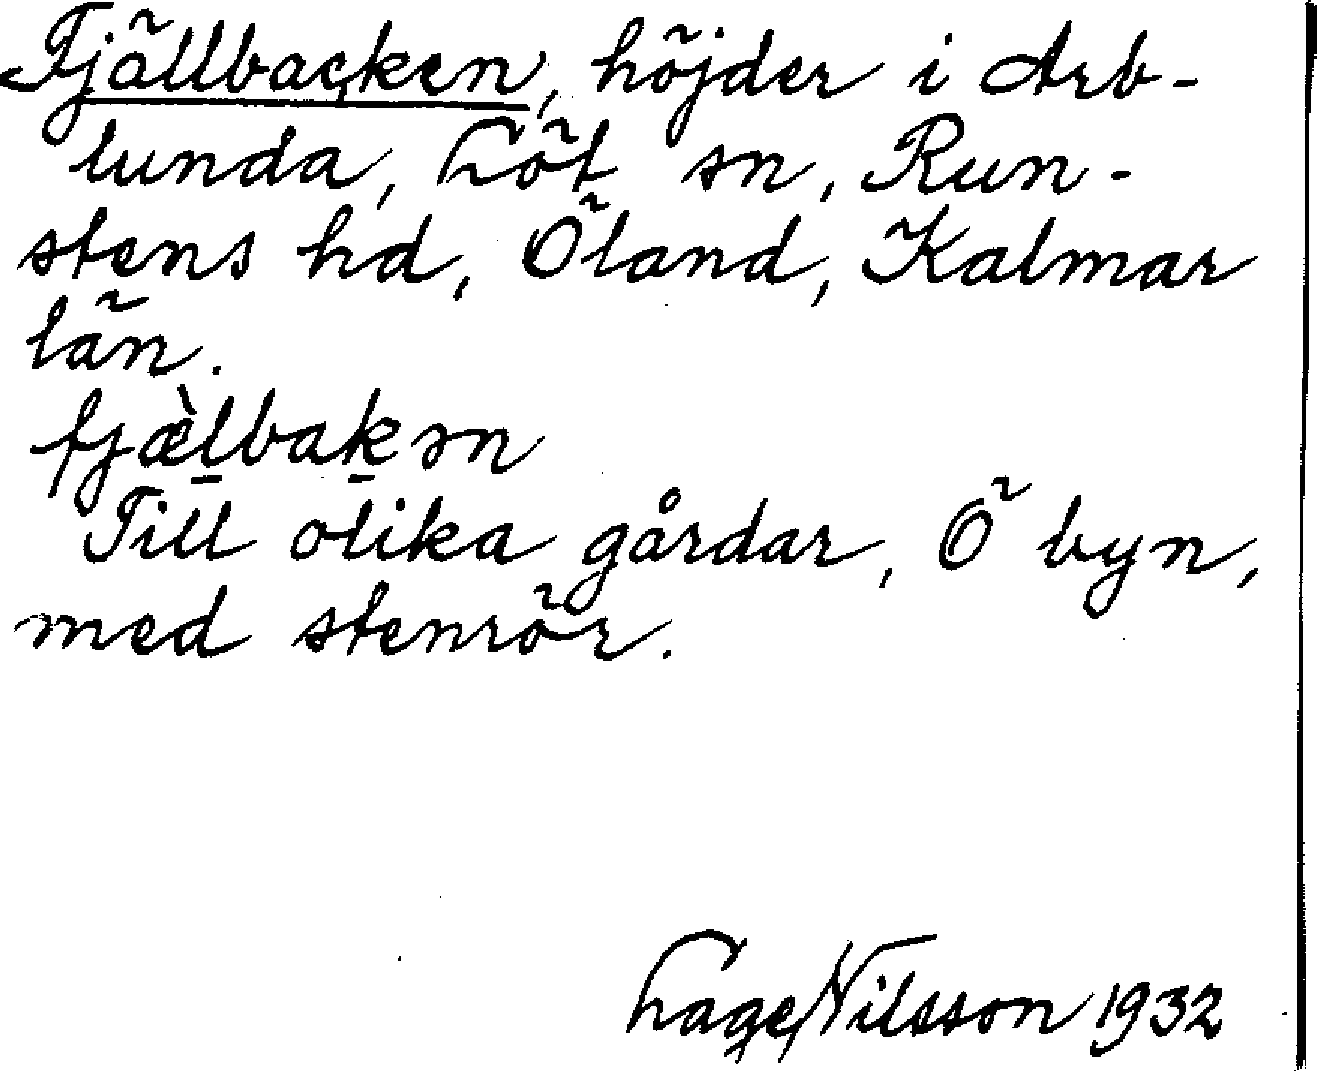 Fjällbacken, höjder i Arb-
lunda, Löt sn, Run-
stens hd, Öland, Kalmar
län.
fjæ̀l̠bak̠ən
Till olika gårdar, Ö byn,
med stenrör.
Lage Nilsson 1932